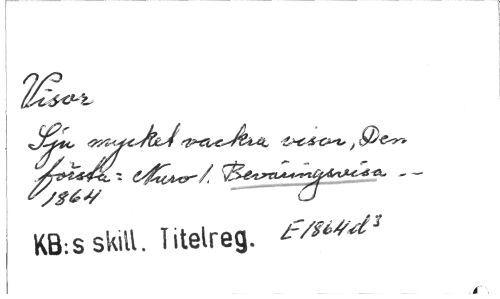 Visor
Sju mycket vackra visor, Den
första: Nuro 1. Beväringsvisa --
1864
KB:s skill. Titelreg. E1864d³